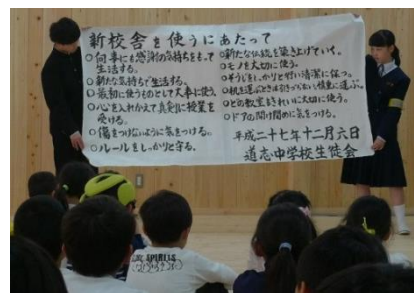 新校舎を使うにあたって
○何事にも感謝の気持ちをもって
生活する。
○新たな気持ちで生活する。
○最初に使うものとして大事に使う。
○心を入れかえて真剣に授業を
受ける。
○傷をつけないように気をつける。
○ルールをしっかりと守る。
○新たな伝統を築き上げていく。
○モノを大切に使う。
○そうじをしっかりと行い清潔に保つ。
○机を運ぶときは引きずらない慎重に運ぶ。
○どの教室もきれいに大切に使う。
○ドアの開け閉めに気をつける。
平成二十七年十二月六日
道志中学校生徒会
SPIRITS